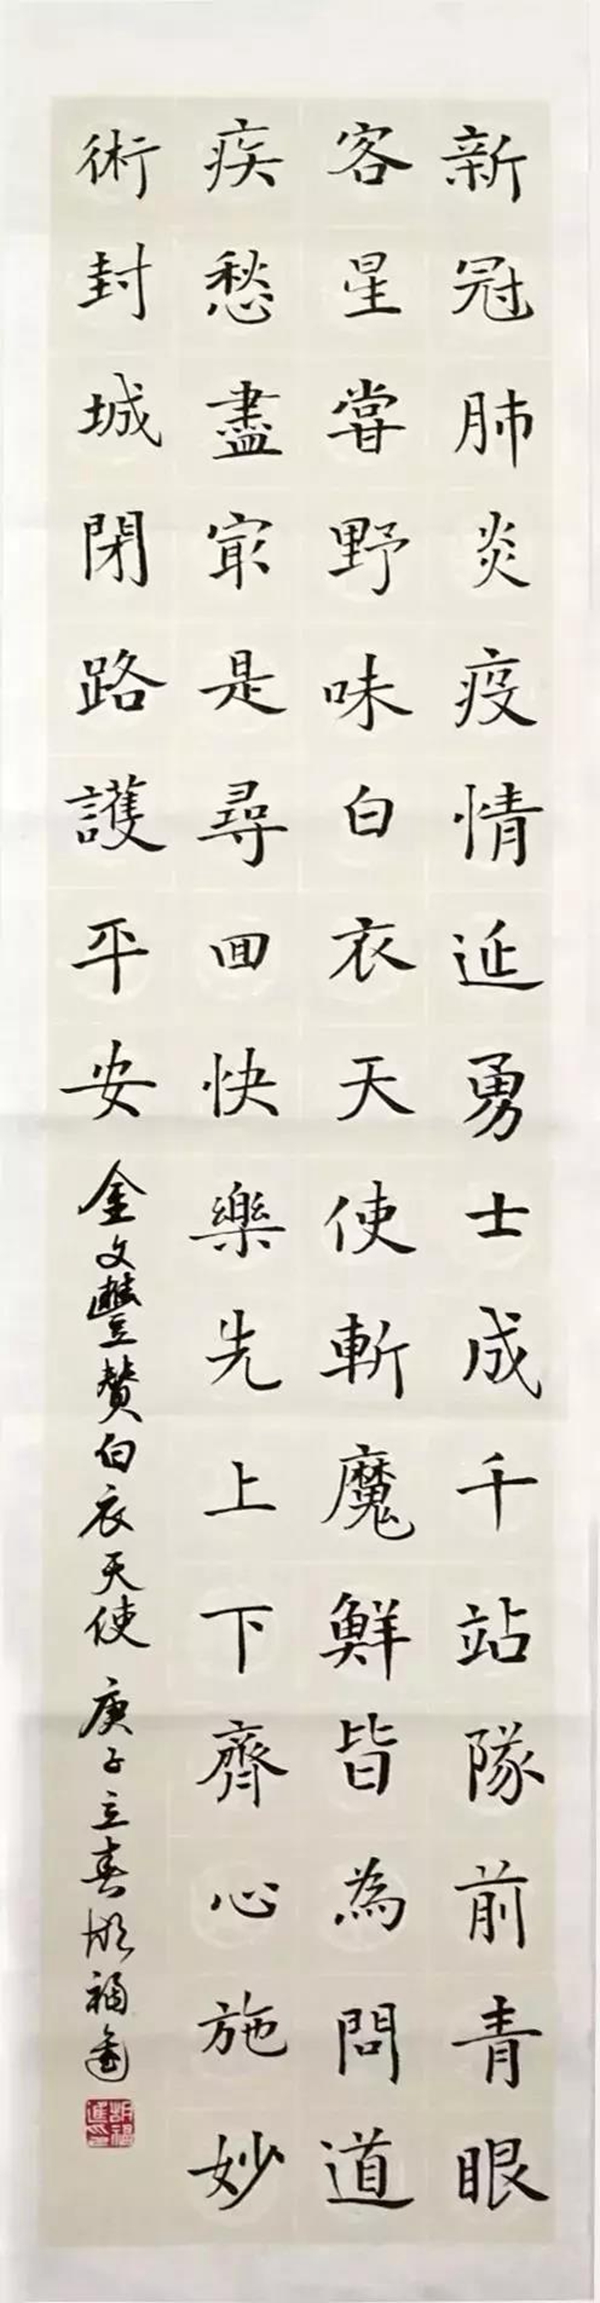 新冠肺炎疫情延勇士成千站隊前青眼
客星嘗野味白衣天使斬魔鮮皆為問道
疾愁盡最是尋回快樂先上下齊心施妙
術封城閉路護平安
金文豐贊白衣天使 庚子立春 福